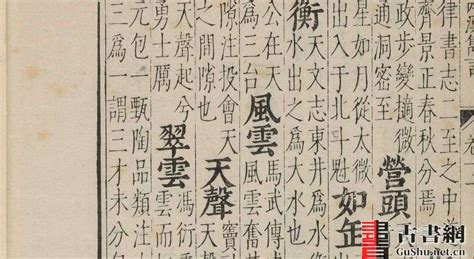 律書志二至之中前
齊景正春秋分焉
政步變擿微
通洞密至
營頭
星如月從太微
出入于北斗魁
如年
衡
天文志東井為水
大水出之為大水
公在天
為三台
風雲
馬武傳
風雲奮
隙注投會天
之間隙也
天聲
竇
天聲起兮
勇士厲
翠雲
馮衍
翠雲而
元包一甄陶品類注
三為一謂三才未分
古書網
GuShu.net.cn